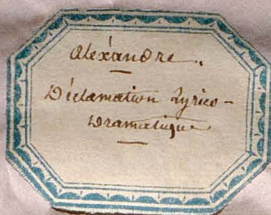 Aléxandre.
Déclamation Lyrico-
Dramatique